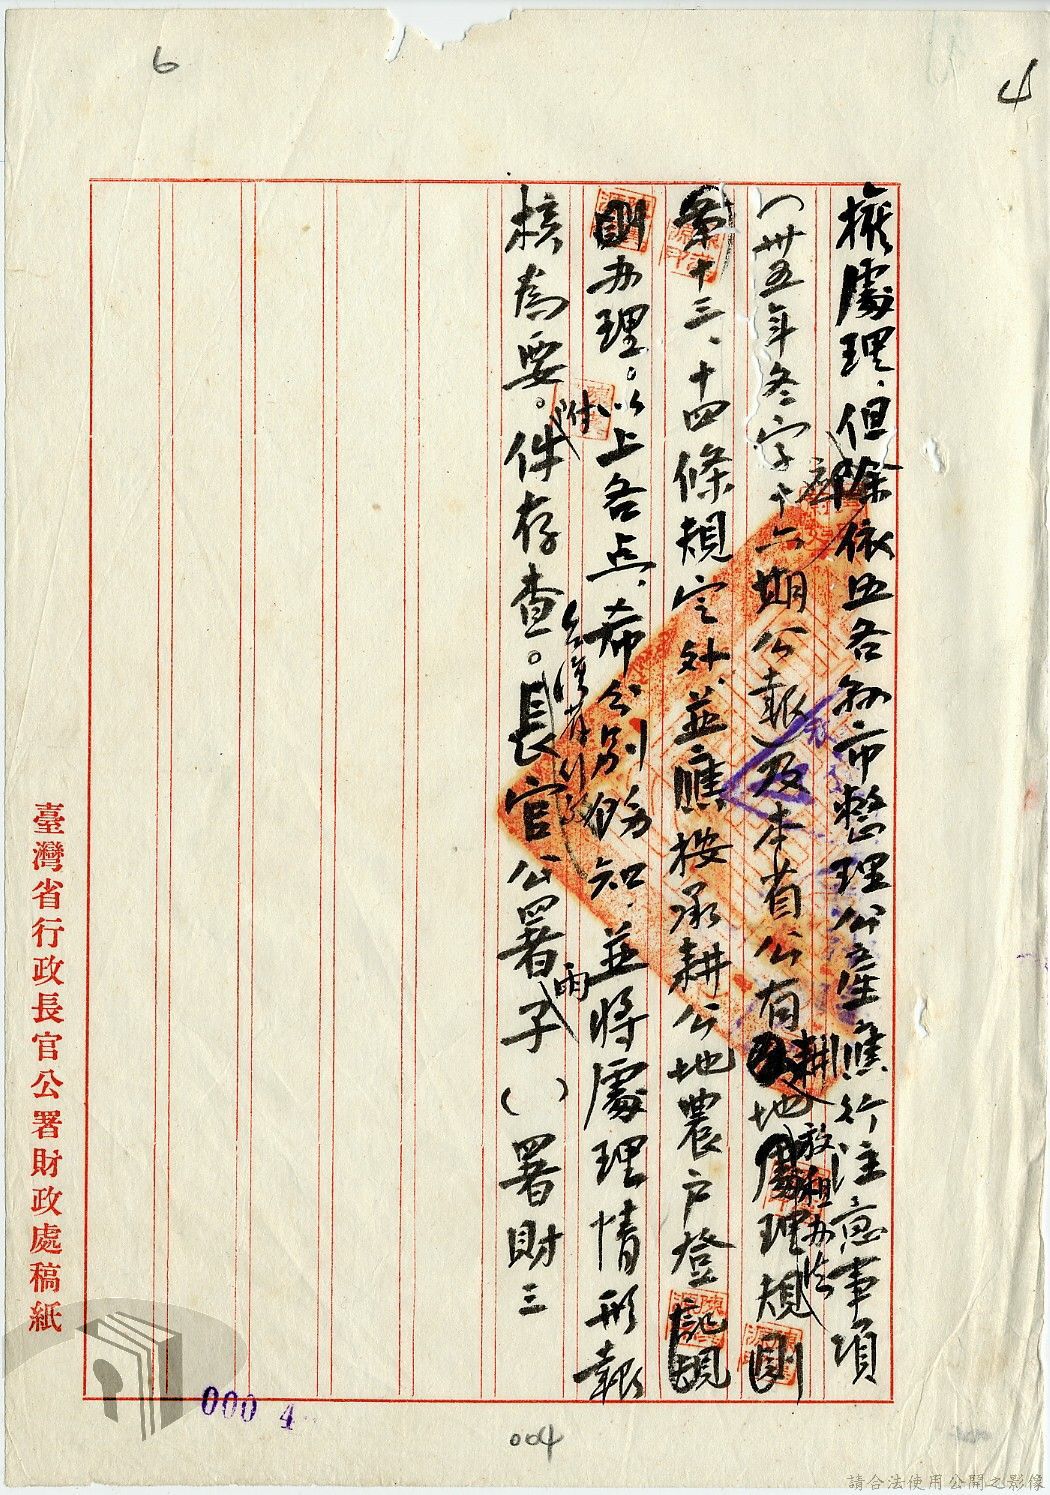 6
4
權處理，但除依照各縣市整理公產應行注意事項
（卅五年冬字十六期公報）及本省公有耕地放租办法
第十三、十四條規定外，並應按承耕公地農戶登記規
則办理。以上各点，希分別飭知，並將處理情形報
核為要。附件存查。長官公署子（）署財三
臺灣省行政長官公署財政處稿紙
000 4
004
請合法使用公開之影像